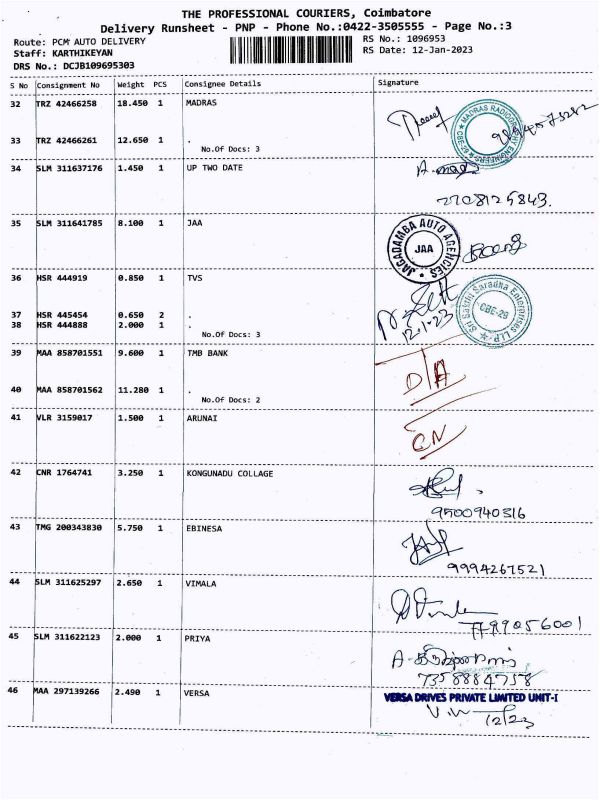 THE PROFESSIONAL COURIERS, Coimbatore
Delivery Runsheet - PNP - Phone No.:0422-3505555 - Page No.:3
Route: PCM AUTO DELIVERY
RS No.: 1096953
Staff: KARTHIKEYAN
RS Date: 12-Jan-2023
DRS No.: DCJB109695303
S No Consignment No Weight PCS Consignee Details Signature
32 TRZ 42466258 18.450 1 MADRAS
MADRAS RADIOGRAPHY ENGINEERS
33 TRZ 42466261 12.650 1 .
No.Of Docs: 3
34 SLM 311637176 1.450 1 UP TWO DATE
35 SLM 311641785 8.100 1 JAA
JAGADAMBA AUTO AGENCIES
JAA
36 HSR 444919 0.850 1 TVS
Sri Sakthi Saradha Enterprises LLP
CBE-29
37 HSR 445454 0.650 2 .
12.1.23
38 HSR 444888 2.000 1 .
No.Of Docs: 3
39 MAA 858701551 9.600 1 TMB BANK
D/A
40 MAA 858701562 11.280 1 .
No.Of Docs: 2
41 VLR 3159017 1.500 1 ARUNAI
CN
42 CNR 1764741 3.250 1 KONGUNADU COLLAGE
9500940316
43 TMG 200343830 5.750 1 EBINESA
9994267521
44 SLM 311625297 2.650 1 VIMALA
45 SLM 311622123 2.000 1 PRIYA
7358884758
46 MAA 297139266 2.490 1 VERSA
VERSA DRIVES PRIVATE LIMITED UNIT-I